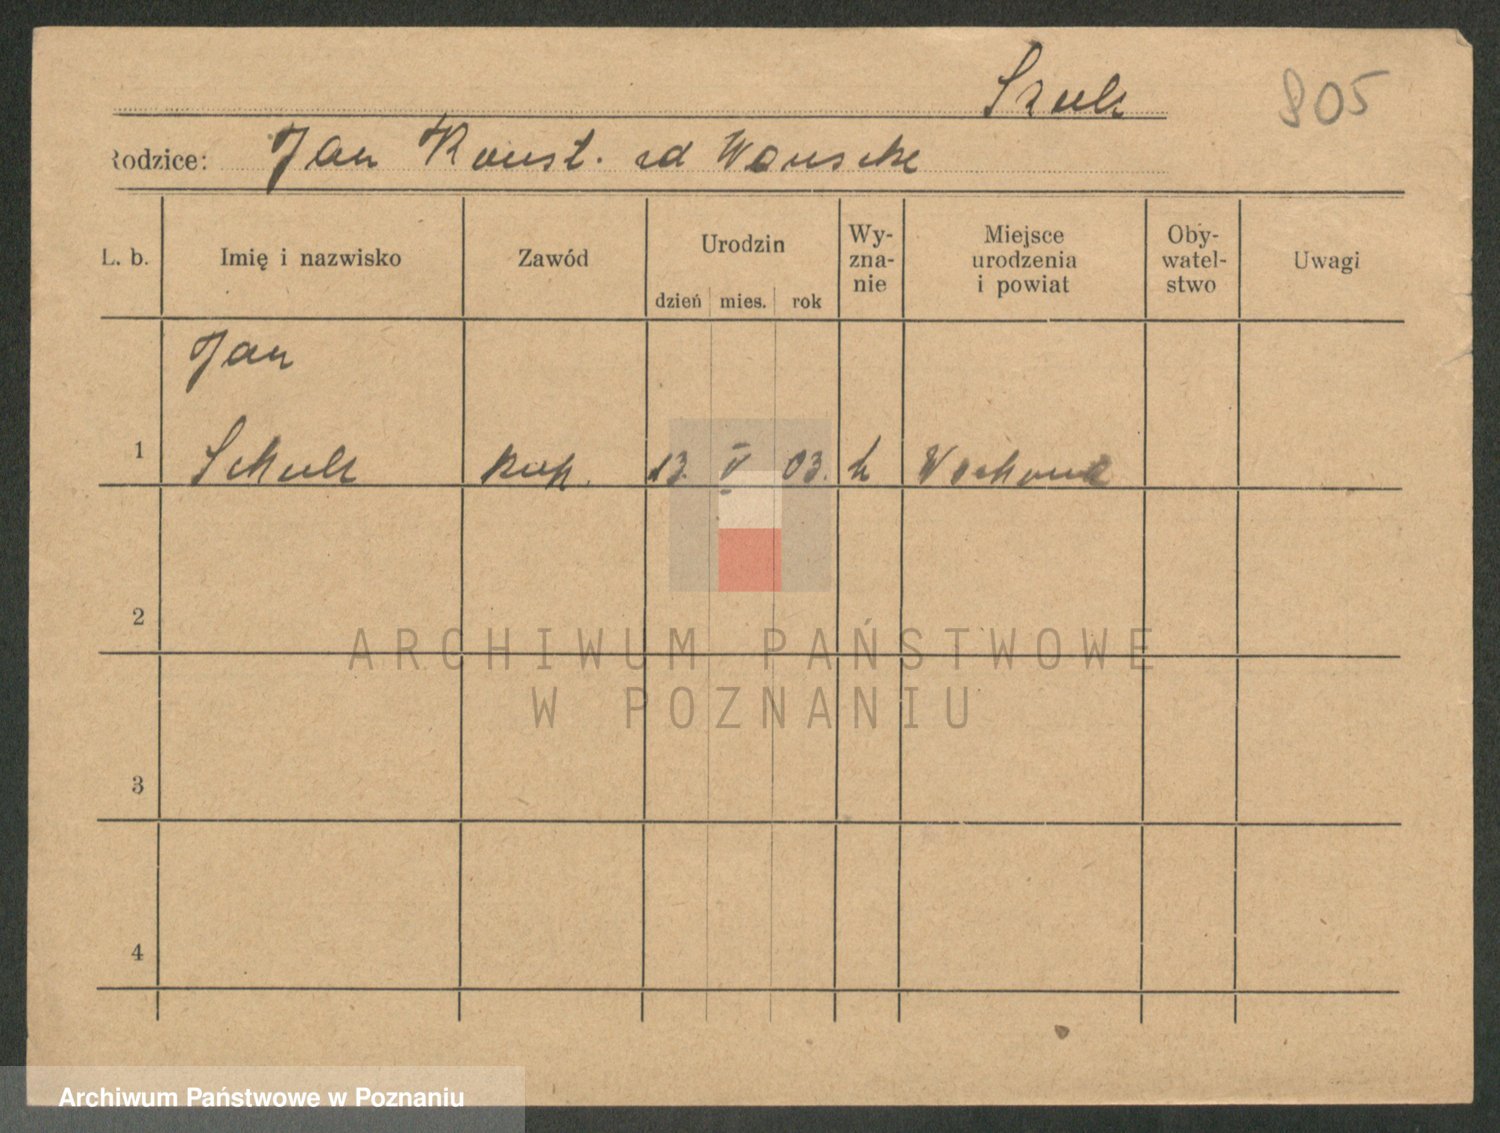 Szulz
805
Rodzice: Jan Konst. zd Wanscke
L. b.
Imię i nazwisko
Zawód
Urodzin
dzień mies. rok
Wy-
zna-
nie
Miejsce
urodzenia
i powiat
Oby-
watel-
stwo
Uwagi
Jan
1 Schulz kup. 13. V 03.
2
3
4
ARCHIWUM PAŃSTWOWE
W POZNANIU
Archiwum Państwowe w Poznaniu